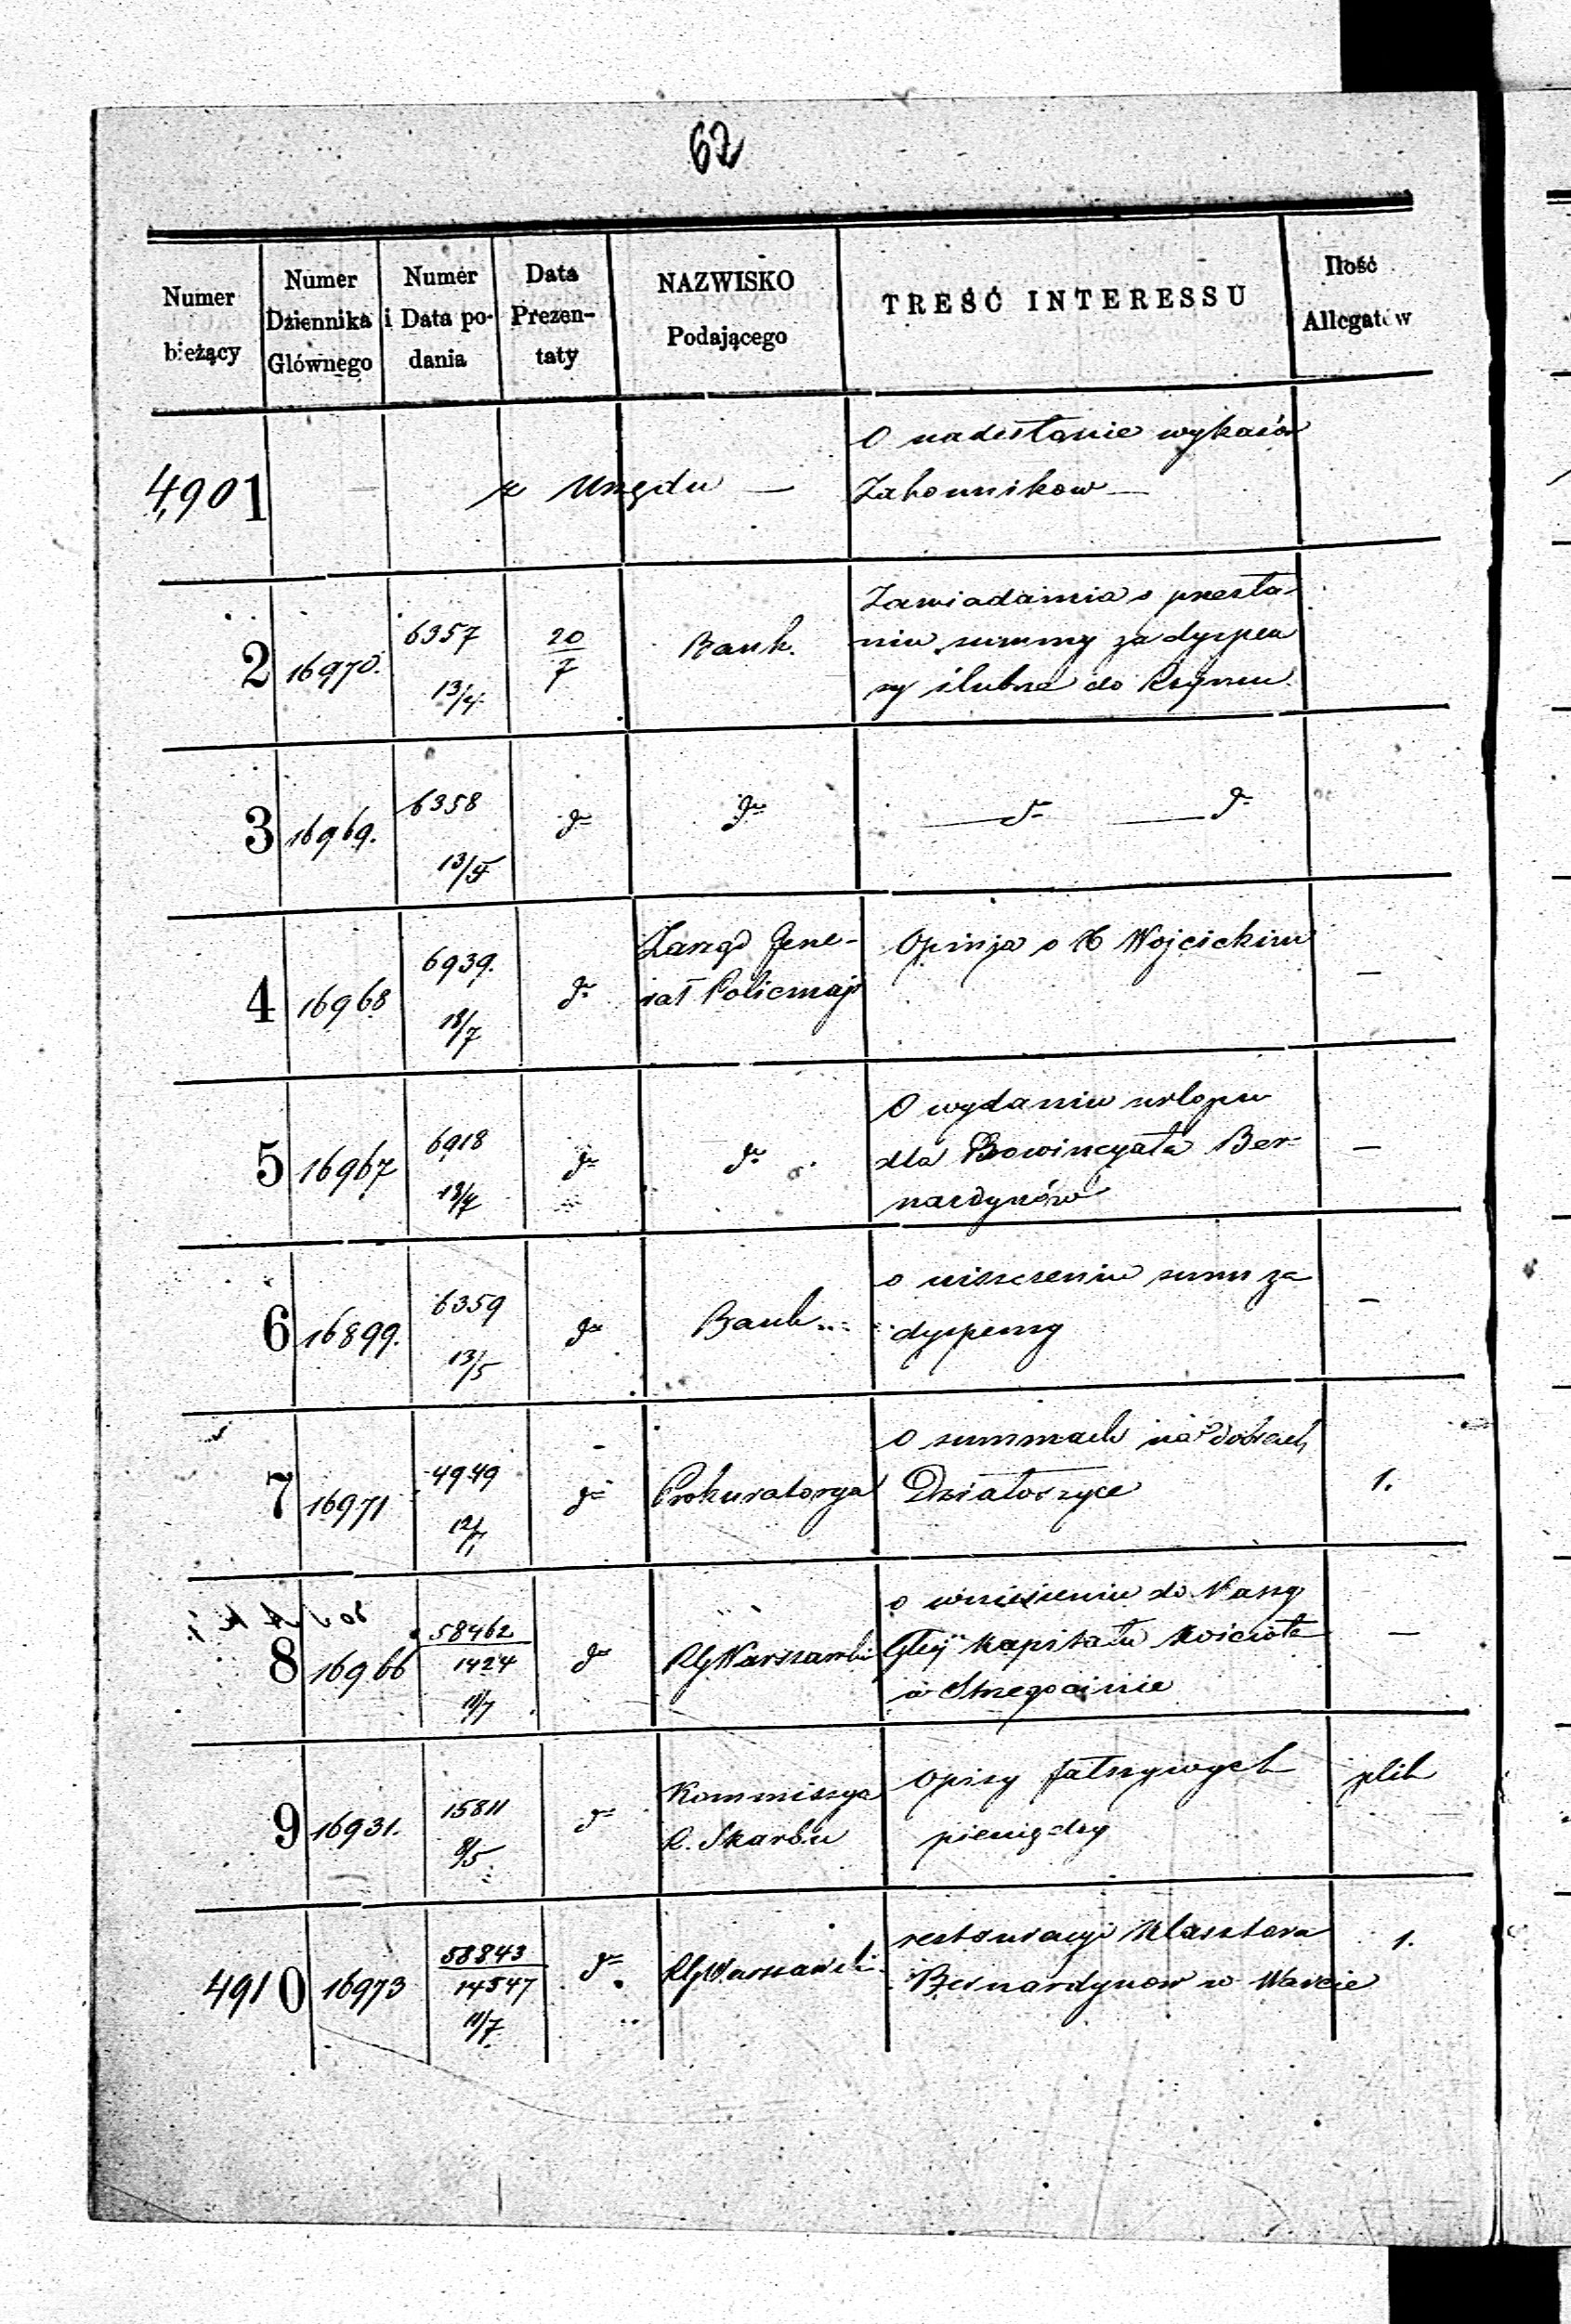 62
Numer bieżący
Numer Dziennika Głównego
Numer i Data podania
Data Prezentaty
NAZWISKO Podającego
TREŚĆ INTERESSU
Ilość Allegatów
4,901 z Urzędu — O nadesłanie wykazów
Zakonnikow —
2 16970. 6357 13/4. 20/7 Bank. Zawiadamia o przesła-
niu summy za dyspen
sy ślubne do Rzymu.
3 16969. 6358 13/5 do do do do
4 16968 6939. 18/7 do Zarząd Jene-
rał Policmajs Opinja o X Wojcickim —
5 16967 6918 18/7 do do O wydaniu urlopu
dla Prowincyała Ber-
nardynów —
6 16899. 6359 13/5 do Bank o uiszczeniu summ za
dyspensy —
7 16971 4949 do Prokuratorya O summach na dobrach
Działoszyce 1.
8 16966 58462 1424 11/7 do RGWarszawski o wniesieniu do Kassy
Głej kapitału kościoła
w Strzegocinie —
9 16931. 15811 8/5 do Kommissya
R. Skarbu Opisy fałszywych
pieniędzy plik
4910 16973 58843 14547 11/7 do RGWarszawski restauracyi Klasztora
Bernardynow w Warcie 1.